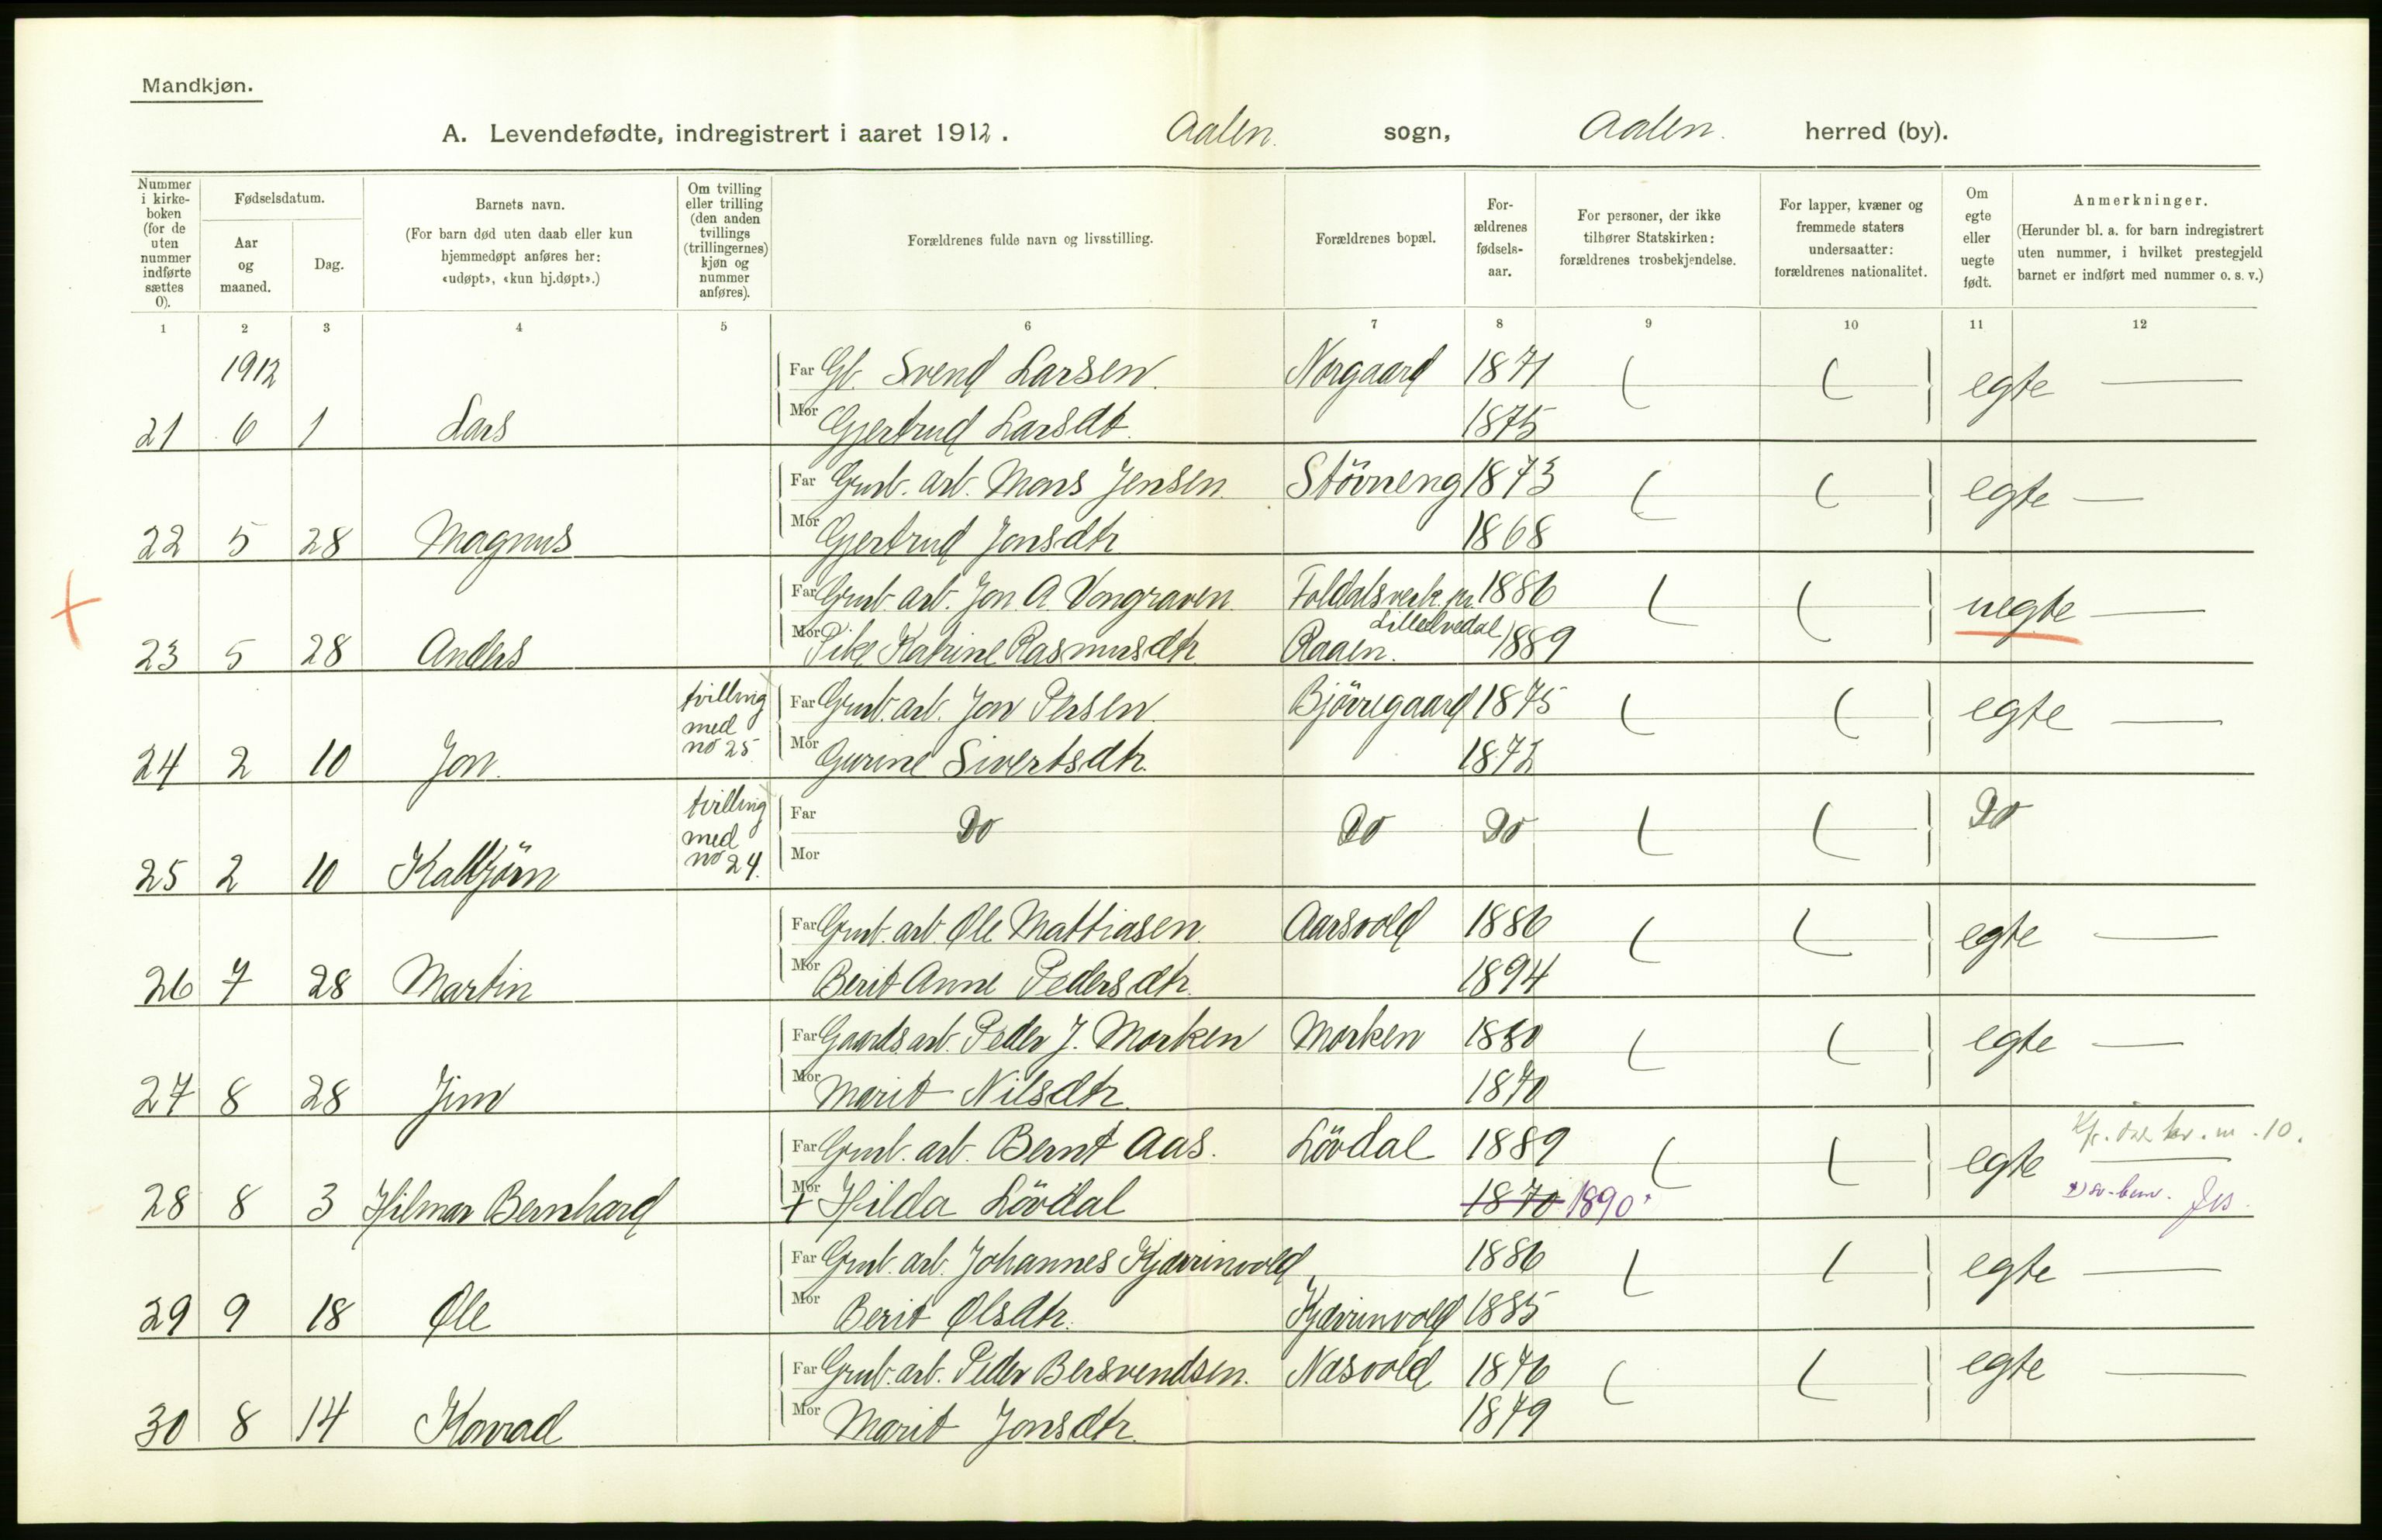 Mandkjøn.
A. Levendefødte, indregistrert i aaret 1912. Aalen. sogn, Aalen. herred (by).
Nummer i kirke-boken (for de uten nummer indførte sættes 0).
Fødselsdatum.
Aar og maaned.
Dag.
Barnets navn.
(For barn død uten daab eller kun hjemmedøpt anføres her: «udøpt», «kun hj.døpt».)
Om tvilling eller trilling (den anden tvillings (trillingernes) kjøn og nummer anføres).
Forældrenes fulde navn og livsstilling.
Forældrenes bopæl.
For-ældrenes fødsels-aar.
For personer, der ikke tilhører Statskirken: forældrenes trosbekjendelse.
For lapper, kvæner og fremmede staters undersaatter: forældrenes nationalitet.
Om egte eller uegte født.
Anmerkninger.
(Herunder bl. a. for barn indregistrert uten nummer, i hvilket prestegjeld barnet er indført med nummer o. s. v.)
1 2 3 4 5 6 7 8 9 10 11 12
1912 Far Gb. Svend Larsen. Norgaard 1871 egte —
21 6 1 Lars Mor Gjertrud Larsdt. 1875
Far Grub. arb. Mons Jensen. Stövneng 1873 egte —
22 5 28 Magnus Mor Gjertrud Jonsdtr 1868
Far Grub. arb. Jon. A. Vongraven. Foldalsverk pr. 1886 uegte —
Lilleelvedal
23 5 28 Anders Mor Pike Katrine Rasmusdtr Raaen. 1889
24 2 10 Jon. tvilling med no 25 Far Grub. arb. Jon Persen. Bjørregaard 1875 egte —
Mor Gurine Sivertsdtr. 1872
25 2 10 Kalbjörn tvilling med no 24. Far Do Do Do Do
Mor
Far Grub. arb. Ole Mattiasen. Aarsvold 1886 egte —
26 7 28 Martin Mor Berit Anne Pedersdtr. 1894
Far Gaards arb. Peder J. Morken Morken 1880 egte —
27 8 28 Jim Mor Marit Nilsdtr. 1870
Far Grub. arb. Bernt Aas. Lövdal 1889 egte
28 8 3 Hilmar Bernhard Mor + Hilda Lövdal 1870 1890
Far Grub. arb. Johannes Kjørrinvold, 1886 egte —
29 9 18 Ole Mor Berit Olsdtr. Kjørrinvold 1885
Far Grub. arb. Peder Bersvendsen. Næsvold 1876 egte —
30 8 14 Konrad Mor Marit Jonsdtr. 1879